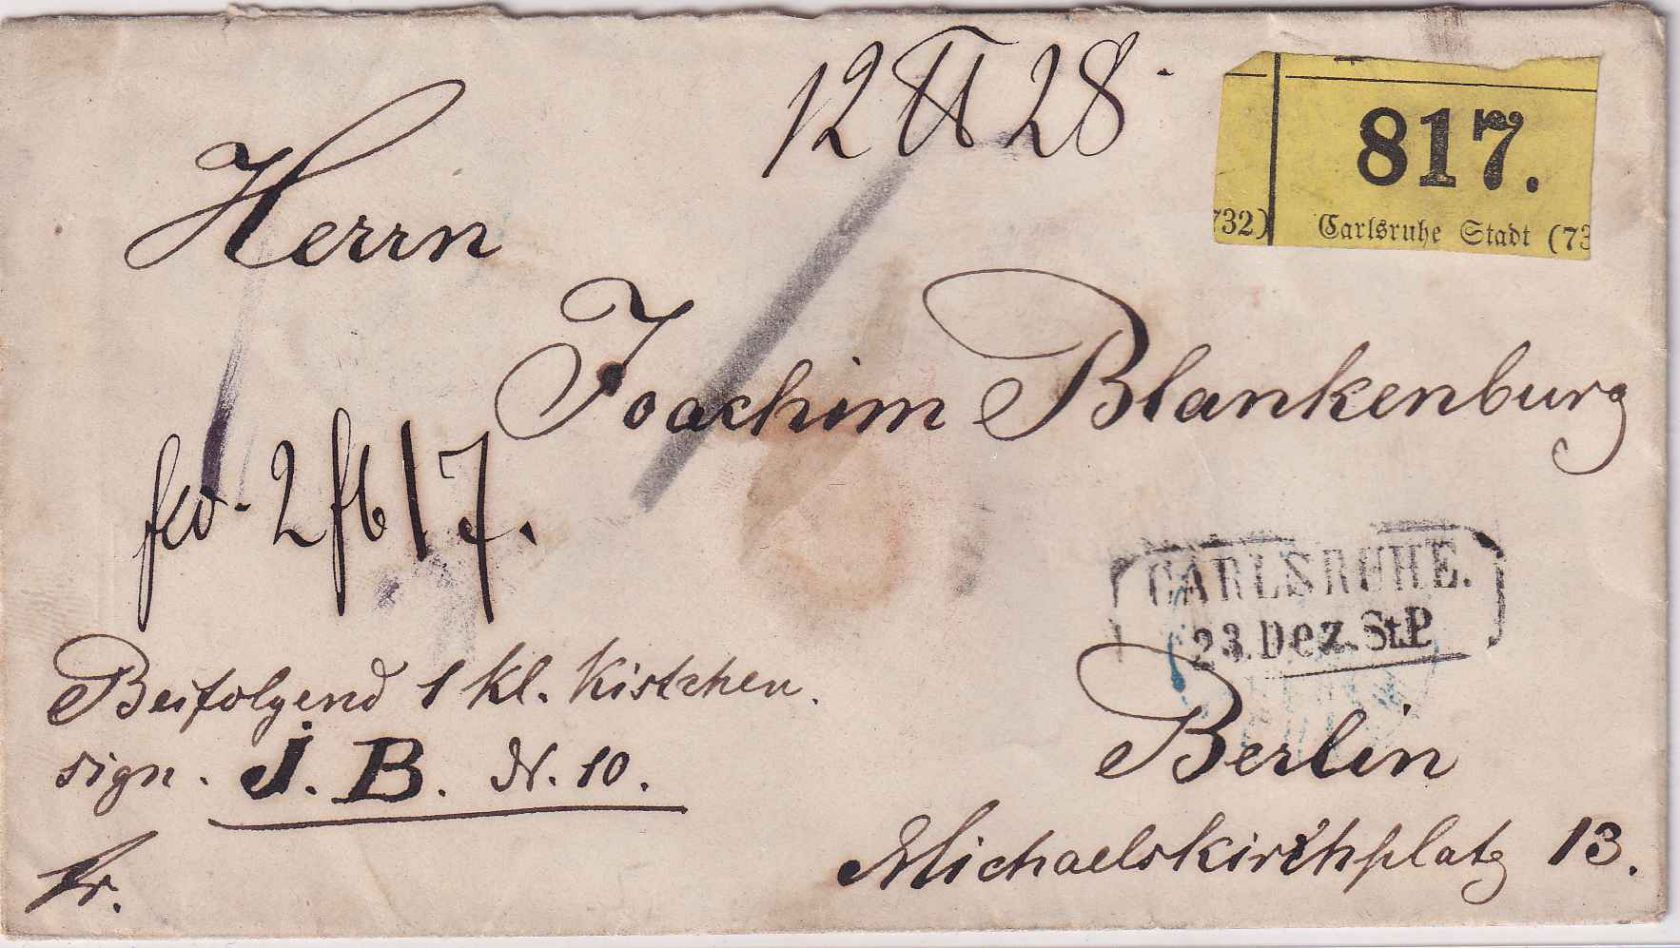 12 ℔ 28.
817.
732)
Carlsruhe Stadt (73
Herrn
Joachim Blankenburg
2 17.
CARLSRUHE.
23. Dez. St.P.
Beifolgend 1 kl. Kistchen.
sign. J. B. N. 10.
Berlin
Michaelskirchplatz 13.
fr.